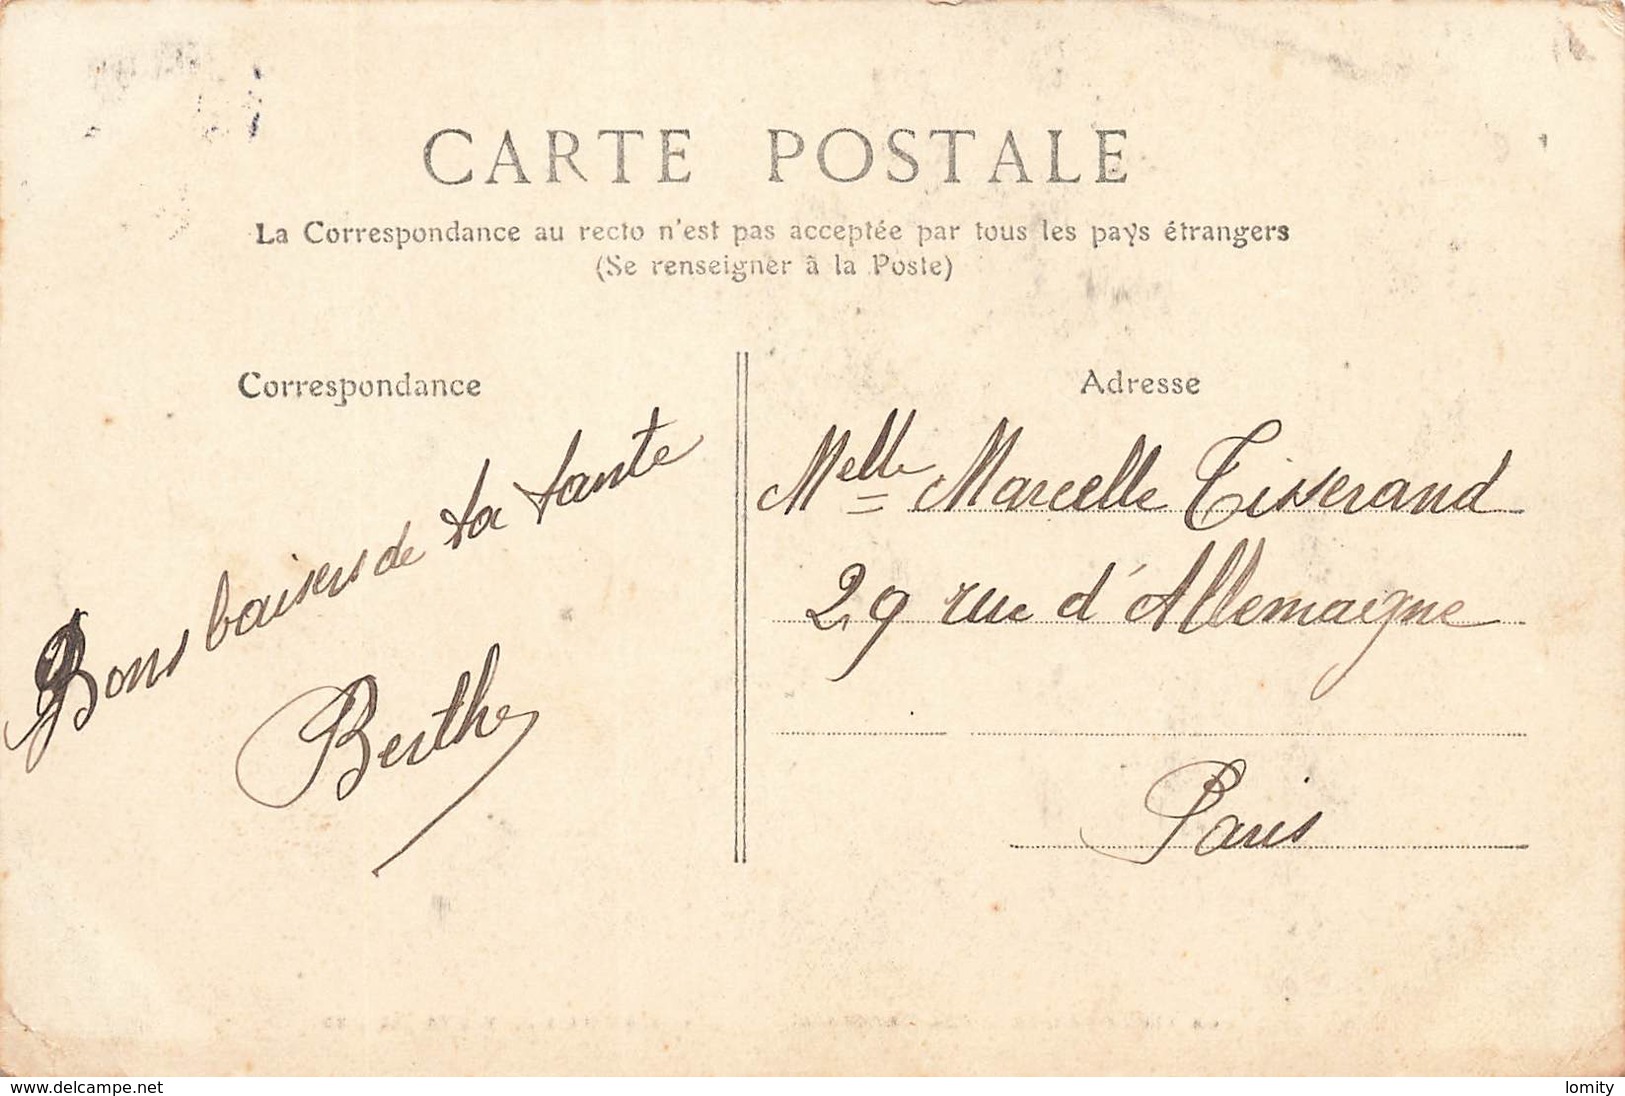 CARTE POSTALE
La Correspondance au recto n'est pas acceptée par tous les pays étrangers
(Se renseigner à la Poste)
Correspondance
Bons baisers de ta tante
Berthe
Adresse
Melle Marcelle Tisserand
29 rue d'Allemaigne
Paris
www.delcampe.net
lomity